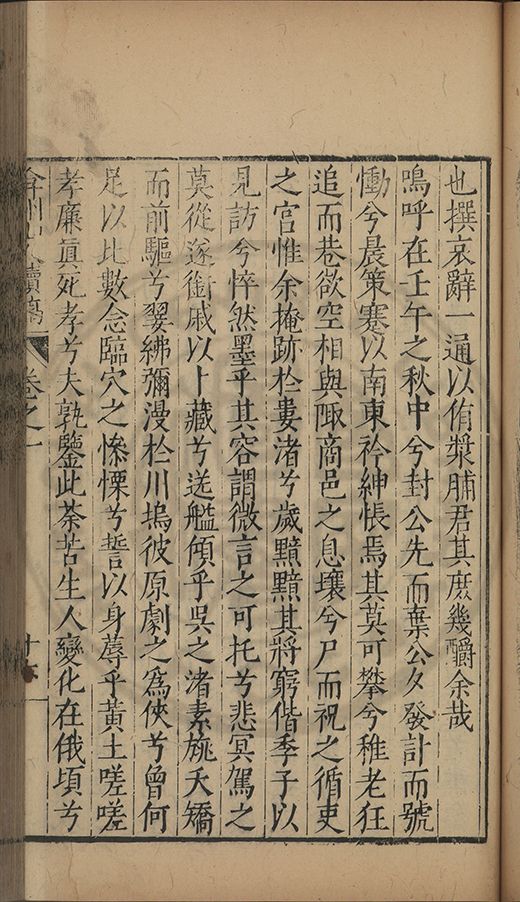 也撰哀辭一通以侑漿脯君其庶幾釂余哉
嗚呼在壬午之秋中兮封公先而棄公夕發計而號
慟兮晨策蹇以南東衿紳悵焉其莫可攀兮稚老狂
追而巷欲空相與陬商邑之息壤兮尸而祝之循吏
之宮惟余掩跡於婁渚兮歲黯黯其將窮偕季子以
見訪兮悴然墨乎其容謂微言之可托兮悲冥駕之
莫從遂銜戚以卜藏兮送艦傾乎吳之渚素旐夭矯
而前驅兮翣紼彌漫於川塢彼原劇之爲俠兮曾何
足以比數念臨穴之慘慄兮誓以身蓐乎黃土嗟嗟
孝廉眞死孝兮夫孰鑒此荼苦生人變化在俄頃兮
弇州山人續稿
卷之一